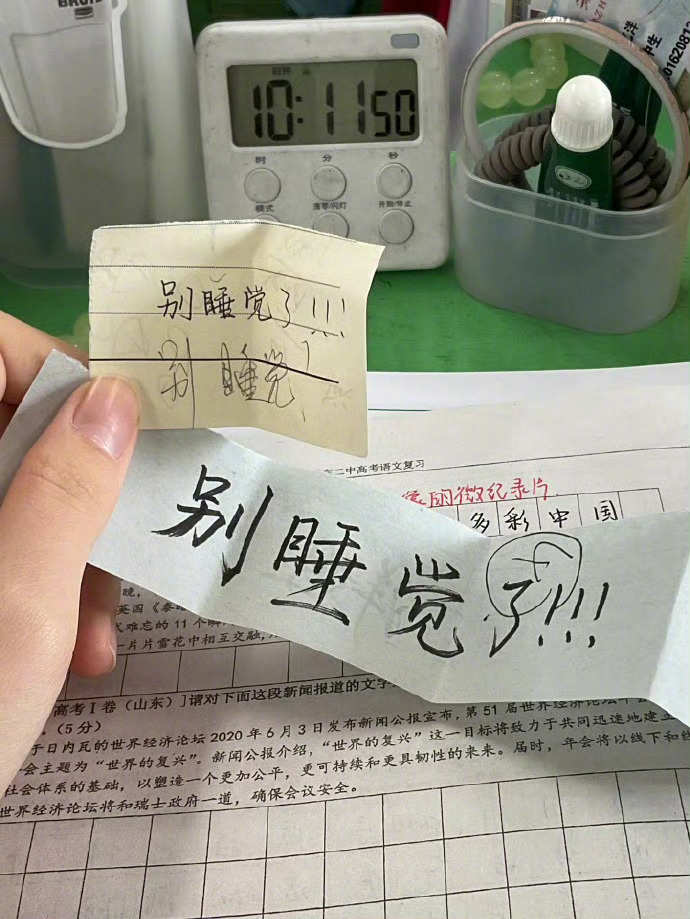 BRUID
10:11 50
时 分 秒
模式 清零/闪灯 开始/停止
洋
中生
01620812
别睡觉了!!!
别睡觉
二中高考语文复习
微纪录片
多彩中国
别睡觉了!!!
晚,
英国《泰晤
难忘的11个瞬
一片片雪花中相互交融,
高考Ⅰ卷(山东)]请对下面这段新闻报道的文字
。(5分)
于日内瓦的世界经济论坛2020年6月3日发布新闻公报宣布,第51届世界经济论坛年会
会主题为“世界的复兴”。新闻公报介绍,“世界的复兴”这一目标将致力于共同迅速地建立
社会体系的基础,以塑造一个更加公平,更可持续和更具韧性的未来。届时,年会将以线下和线
世界经济论坛将和瑞士政府一道,确保会议安全。